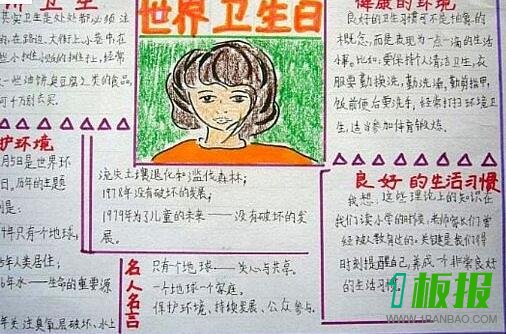 世界卫生日
讲卫生
其实卫生是处处都必须注
的,在路边、大街上、小巷中,在
些小树、小摊的小树上,经常
一些油饼、臭豆腐之类的食品,
可千万别去买。
健康的环境
良好的卫生习惯可不是抽象的
概念,而是表现为一点一滴的生活
事。比如,要保持个人清洁卫生,衣
服要勤换洗,勤洗澡,勤剪指甲,
饭前便后要洗手,经常打扫环境卫
生,适当参加体育锻炼。
护环境
月5日是世界环
日,历年的主题
别是:
年只有一个地球;
年人类居住;
年水——生命的重要源
注臭氧层破坏、水土
流失土壤退化和滥伐森林;
1978年没有破坏的发展;
1979年为了儿童的未来——没有破坏的发
展。
名人名言
只有一个地球——关心与共享。
一个地球一个家庭。
保护环境、持续发展、公众参与。
良好的生活习惯
我想,这些理论上的知识在
我们读小学的时候,老师家长们曾
经被人教育过的。关键是我们得
时刻提醒自己,养成一个非常良好
的生活习惯。
1板报
WWW.1BANBAO.COM